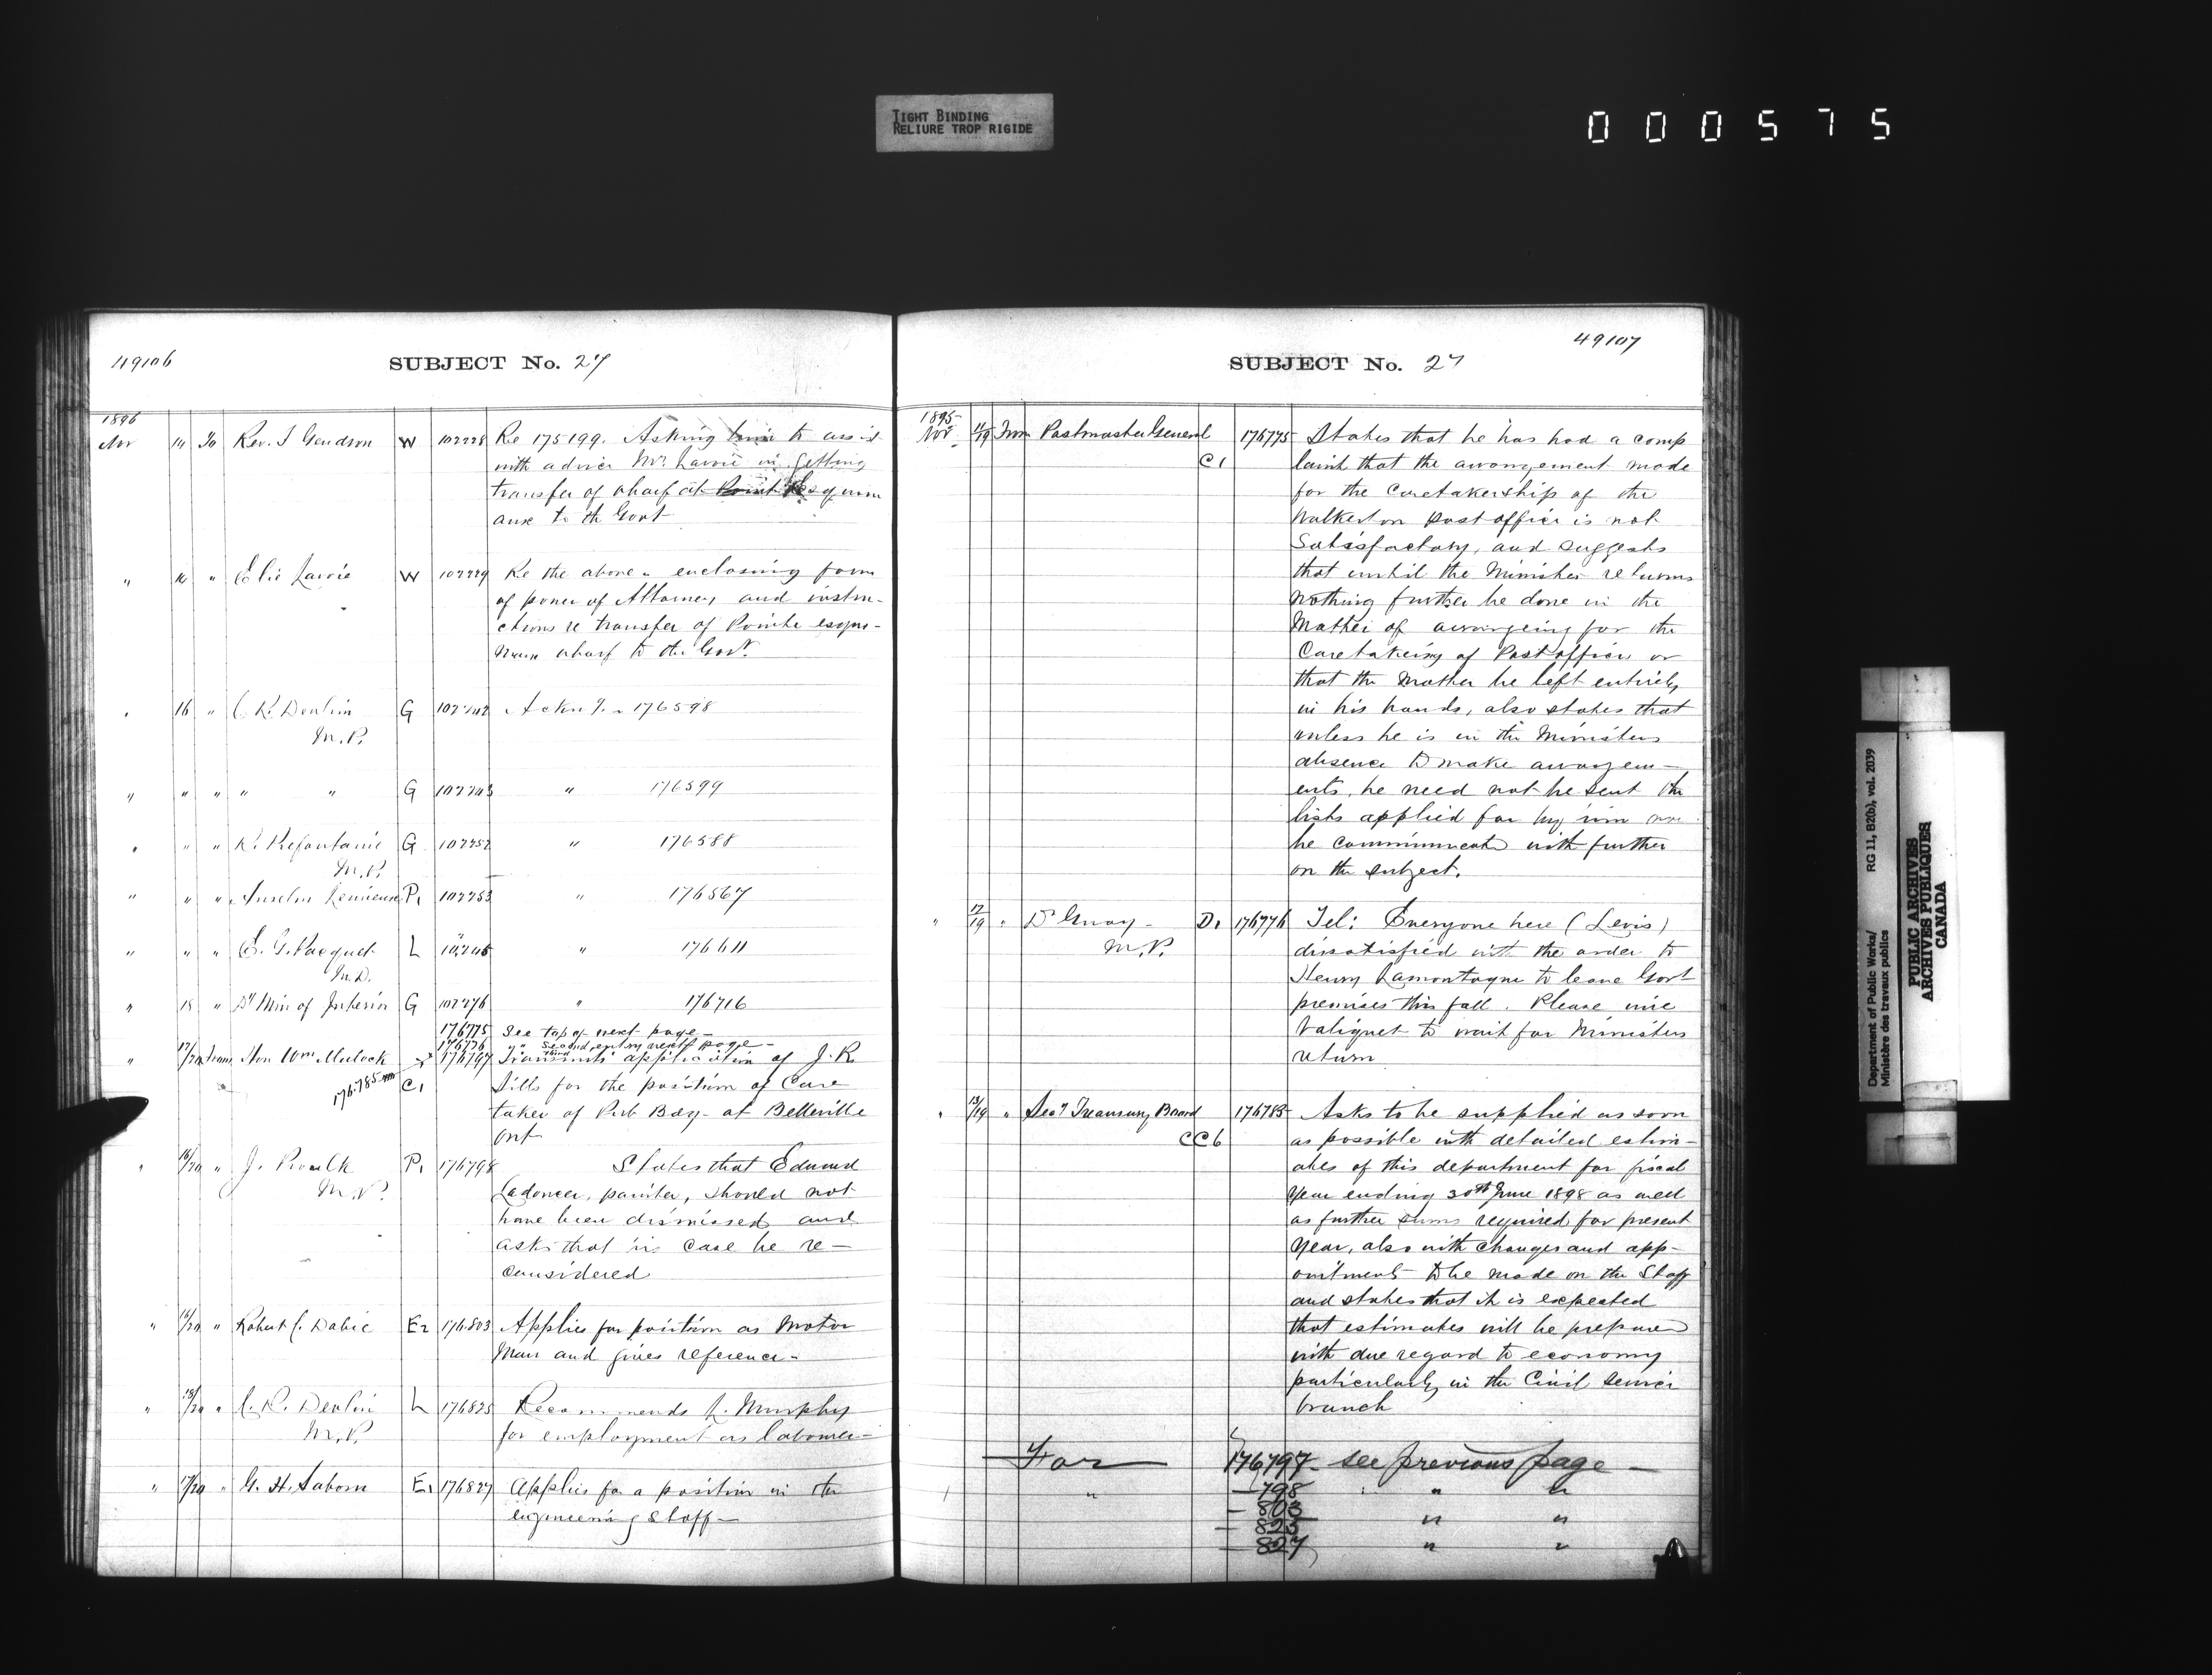 TIGHT BINDING
RELIURE TROP RIGIDE
000575
49106
SUBJECT No. 27
1896
Nov 14 To Rev. J Gendron W 102228 Re 175199. Asking him to assist
with advice Mr. Lavoie in getting
transfer of wharf at Point Esquim
aux to th Govt
" " Elie Lavoie W 102229 Re the above - enclosing form
of power of Attorney and instru-
ctions re transfer of Pointe esqui-
maux wharf to the Govt.
" 16 " C. R. Devlin G 102242 Ackn'g - 176598
M.P.
" " " " " G 102243 " 176599
" " " R. Prefontaine G 102252 " 176588
M.P.
" " " Anselm P1 102253 " 176567
" " " E. G. Pacquet L " 176611
M.D.
" 18 " Dy Min of Interior G 102276 " 176716
176775 See top of next page -
176776 " second entry next page -
" 17/20 From Hon Wm Mulock 176797 Transmits application of J. R.
176785 C1 Sills for the position of Care
taker of Pub Bdg - at Belleville
Ont
" 16/20 " J. Proulx P1 176798 States that Edmund
M.P. Ladoucer, painter, should not
have been dismissed and
asks that his case be re-
considered
" 16/20 " Robert C. E2 176803 Applies for position as Motor
Man and gives reference -
" 18/20 " C. R. Devlin L 176825 Recommends L. Murphy
M.P. for employment as labourer -
" 17/20 " G. H. Saborn E1 176827 Applies for a position in the
engineering staff -
49107
SUBJECT No. 27
1895
Nov 11/19 From Postmaster General 176775 States that he has had a comp
C1 laint that the arrangement made
for the Caretakership of the
Walkerton post office is not
Satisfactory, and suggests
that until the Minister returns
nothing further be done in the
Matter of arrangeing for the
Caretakeing of Post offices or
that the matter be left entirely
in his hands, also states that
unless he is in the Ministers
absence to make arrangem-
ents, he need not be sent the
lists applied for by him nor
be communicated with further
on the subject.
" 17/19 " Dr Guay - D1 176776 Tel: Everyone here (Levis)
M.P. dissatisfied with the order to
Henry Lamontagne to leave Govt
premises this fall. Please wire
Valiquet to wait for Ministers
return
" 13/19 " Secy Treasury Board 176783 Asks to be supplied as soon
CC6 as possible with detailed estim-
ates of this department for fiscal
Year ending 30th June 1898 as well
as further sums required for present
Year, also with changes and app-
ointments to be made on the Staff
and states that it is expected
that estimates will be prepared
with due regard to economy
particularly in the Civil Service
branch
For 176797 - see previous page -
" - 798 " "
- 803
- 825 " "
- 827 " "
Department of Public Works/
Ministère des travaux publics
RG 11, B2(b), vol. 2039
PUBLIC ARCHIVES
ARCHIVES PUBLIQUES
CANADA